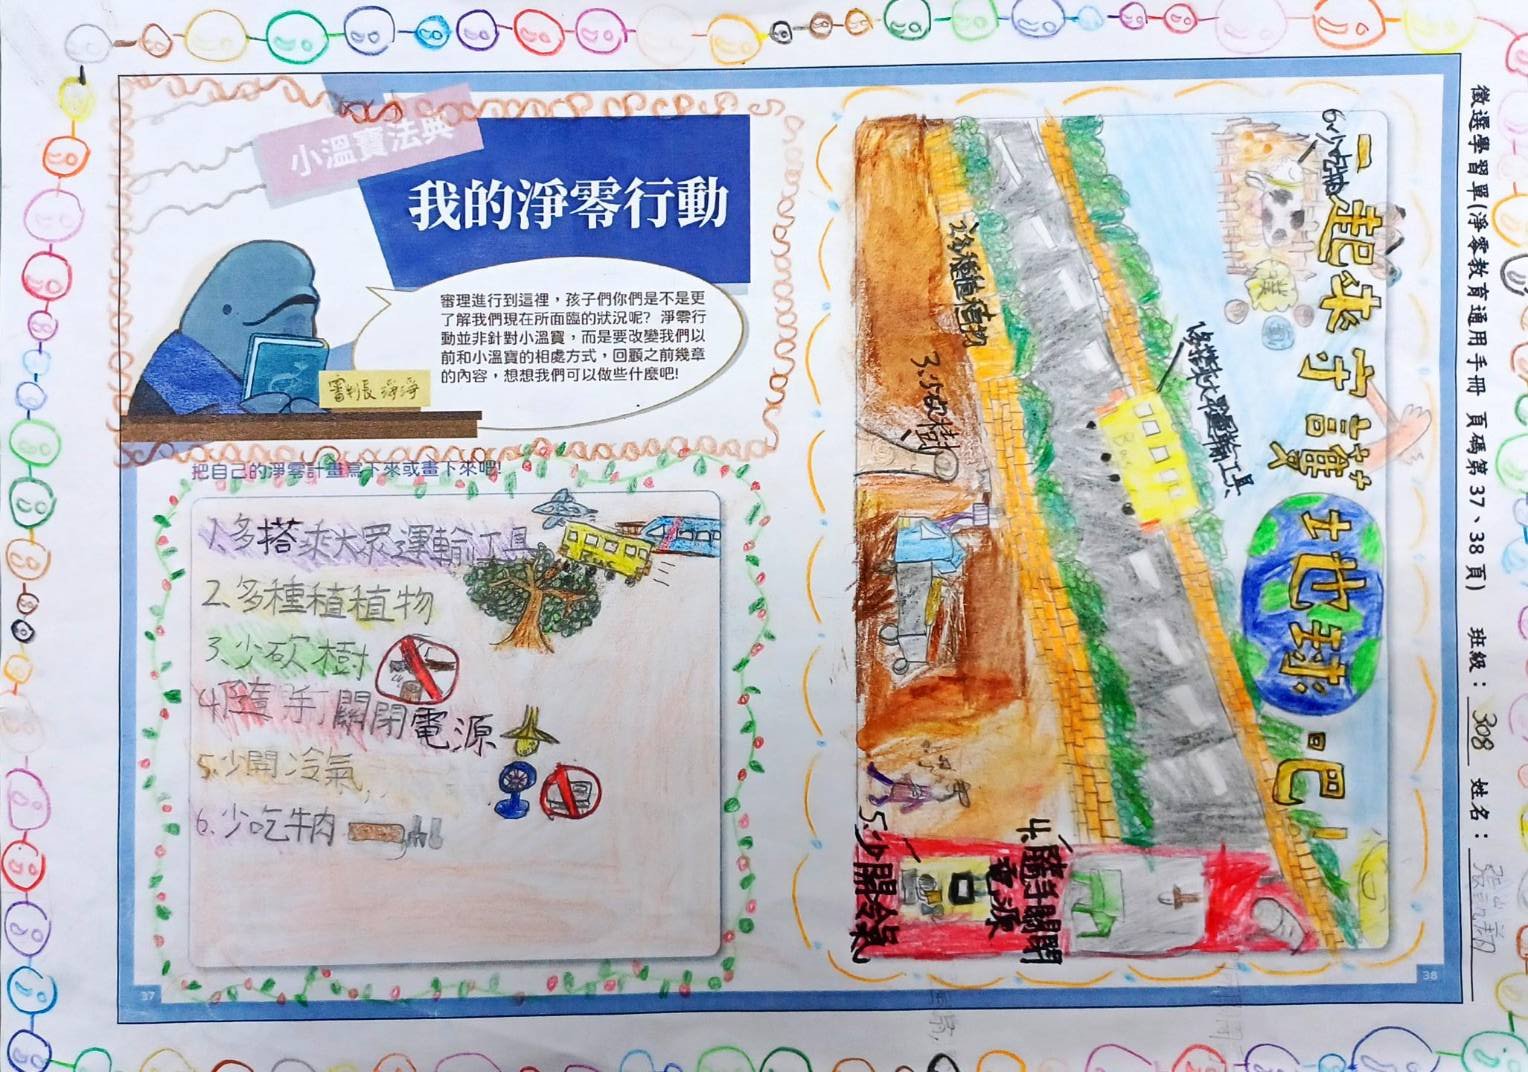 小溫寶法典
我的淨零行動
審理進行到這裡，孩子們你們是不是更
了解我們現在所面臨的狀況呢？淨零行
動並非針對小溫寶，而是要改變我們以
前和小溫寶的相處方式，回顧之前幾章
的內容，想想我們可以做些什麼吧!
審判長 淨淨
把自己的淨零計畫寫下來或畫下來吧!
1.多搭乘大眾運輸工具
2.多種植植物
3.少砍樹
4.隨手關閉電源
5.少開冷氣
6.少吃牛肉
37
一起來守護地球吧!
1.多搭乘大眾運輸工具
2.多種植植物
3.少砍樹
4.隨手關閉
電源
5.少開冷氣
38
徵選學習單(淨零教育通用手冊 頁碼第37、38頁) 班級：308 姓名：